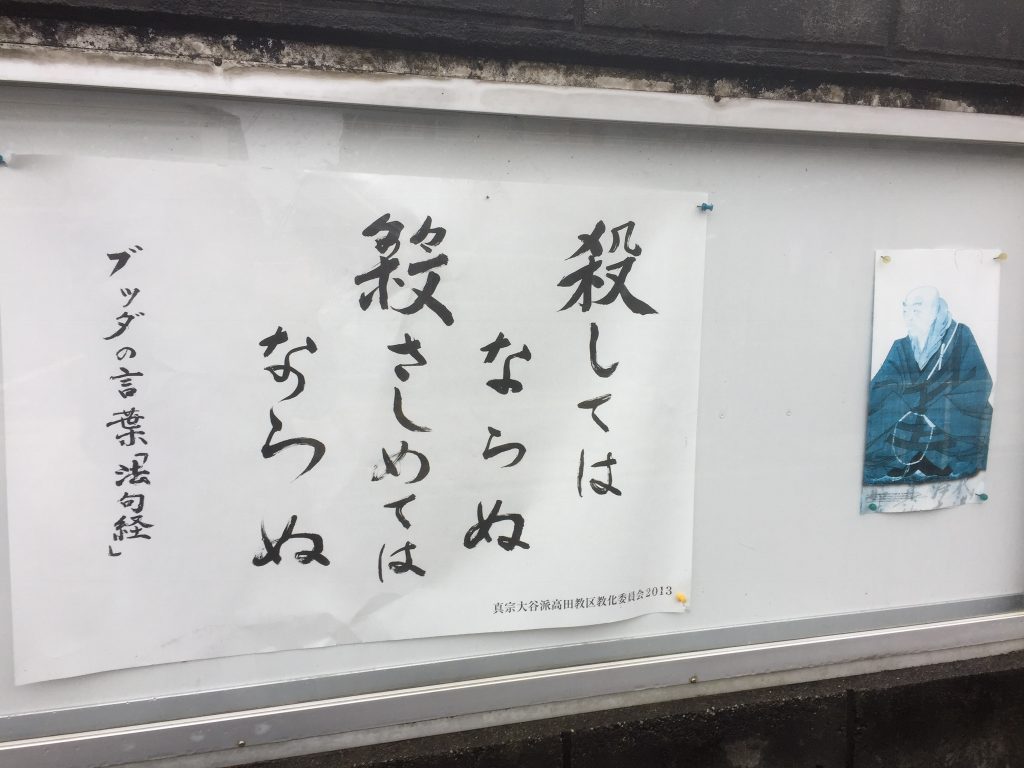 殺しては
ならぬ
殺さしめては
ならぬ
ブッダの言葉「法句経」
真宗大谷派高田教区教化委員会2013